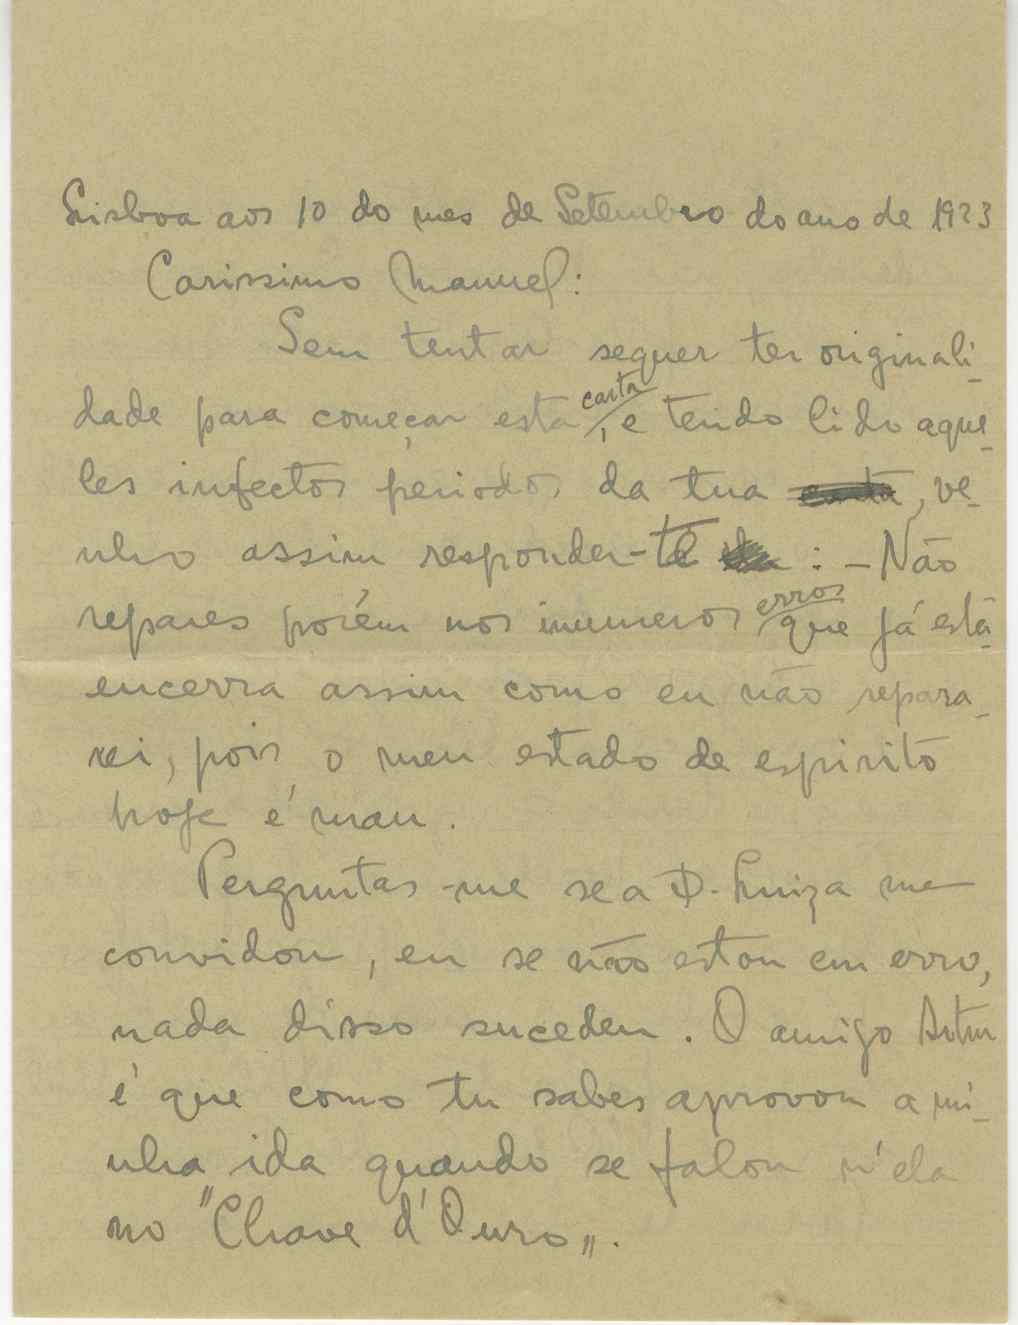 Lisboa aos 10 do mes de Setembro do ano de 1923
Carissimo Manuel:
Sem tentar sequer ter originali-
dade para começar esta carta, e tendo lido aque-
les infectos periodos da tua carta, ve-
nho assim responder-te : - Não
repares porém nos inumeros erros que já esta
encerra assim como eu não repara-
rei, pois o meu estado de espirito
hoje é mau.
Perguntas-me se a D. Luiza me
convidou, eu se não estou em erro,
nada disso sucedeu. O amigo Artur
é que como tu sabes aprovou a mi-
nha ida quando se falou n'ela
no "Chave d'Ouro".